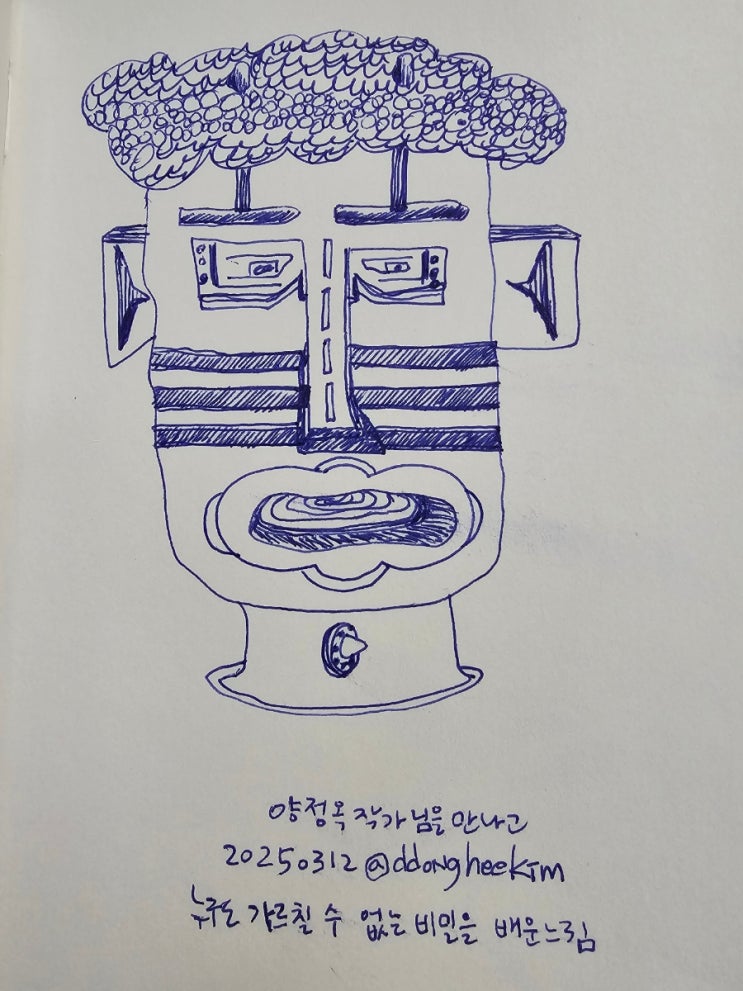 양정옥 작가님을 만나고
20250312 @ddongheekim
누구도 가르칠 수 없는 비밀을 배운느낌